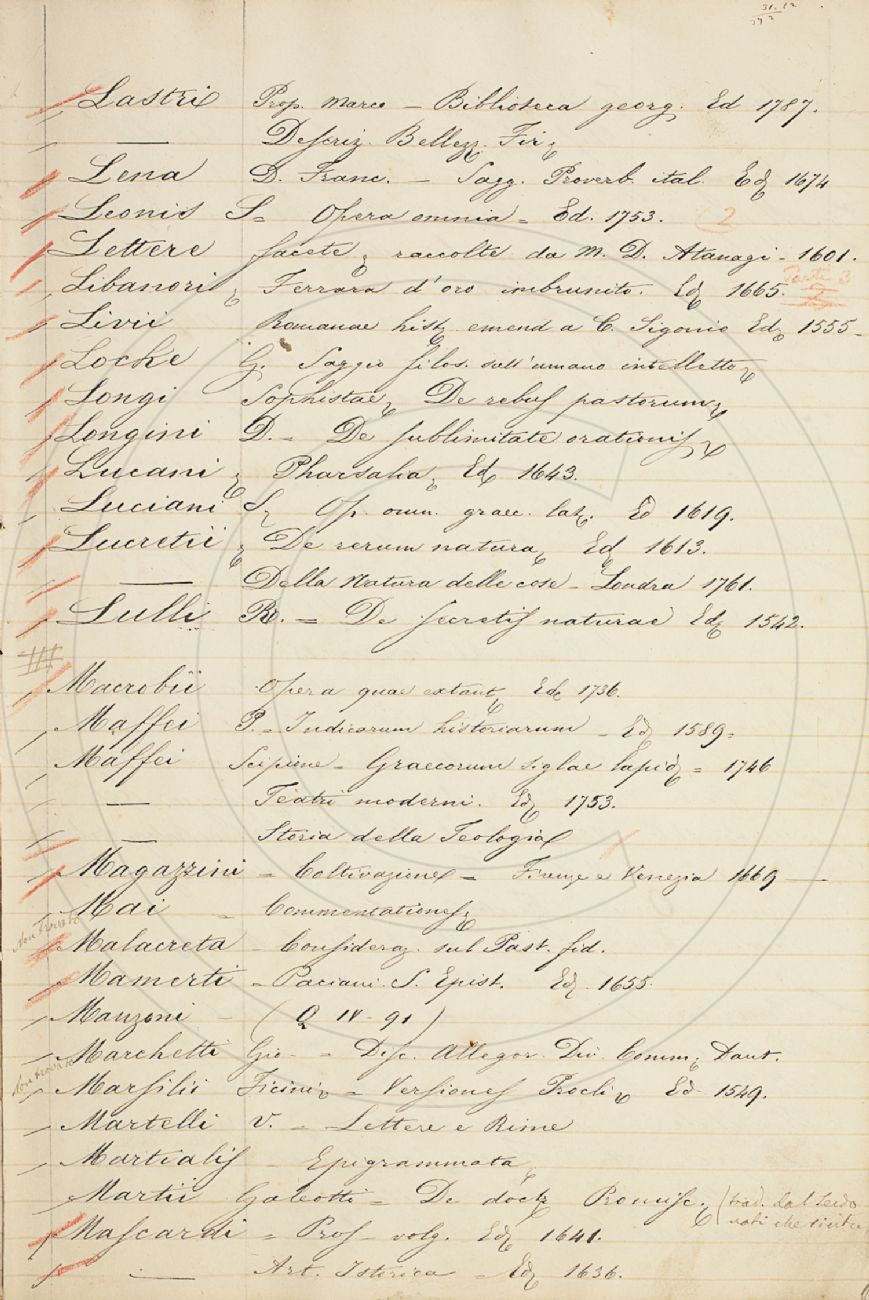 Lastri Prop. Marco – Biblioteca georg. Ed 1787.
— Descriz. Bellezz. Fir.
Lena D. Franc. – Sagg. Proverb. ital. Ed. 1674
Leonis S = Opera omnia = Ed. 1753. (2
Lettere facete, raccolte da M. D. Atanagi – 1601.
Libanori, Ferrara d'oro imbrunito. Ed. 1665. 3
Livii Romanae hist. emend a C. Sigonio Ed. 1555 –
Locke G. Saggio filos. sull'umano intelletto,
Longi Sophistae, De rebus pastorum,
Longini D. – De sublimitate orationis,
Lucani, Pharsalia, Ed. 1643.
Luciani S. Op. omn. graec. lat. Ed 1619.
Lucretii, De rerum natura, Ed. 1613.
— Della Natura delle cose – Londra 1761.
Lulli R. = De secretis naturae Ed. 1542.
Macrobii Opera quae extant, Ed. 1736.
Maffei P. – Indicarum historiarum – Ed. 1589 =
Maffei Scipione – Graecorum siglae lapid. = 1746
— Teatri moderni. Ed. 1753.
— Storia della Teologia
Magazzini = Coltivazione = Firenze e Venezia 1669 —
Mai – Commentationes,
Non trovato
Malacreta – Consideraz. sul Past. fid.
Mamerti = Paciani. S. Epist. Ed. 1655.
Manzoni – (Q IV – 91)
Marchetti Gio – = Disc. Allegor. Div. Comm. Dant.
Non trovato
Marsilii Ficini, = Versiones Procli, Ed 1549.
Martelli V. = Lettere e Rime
Martialis – Epigrammata,
Martii Galeotti = De doct. Promisc. (trad. dal Serdo
nati che
Mascardi = Pros. volg. Ed. 1641.
— Art. Istorica = Ed. 1636.